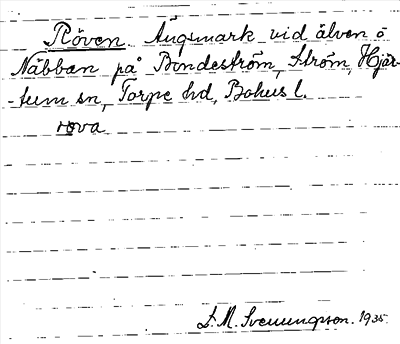 Röven. Ängsmark vid älven ö
Näbban på Bondeström, Ström, Hjär-
-tum sn, Torpe hd, Bohus l.
rova
L. M. Svenungsson. 1935.